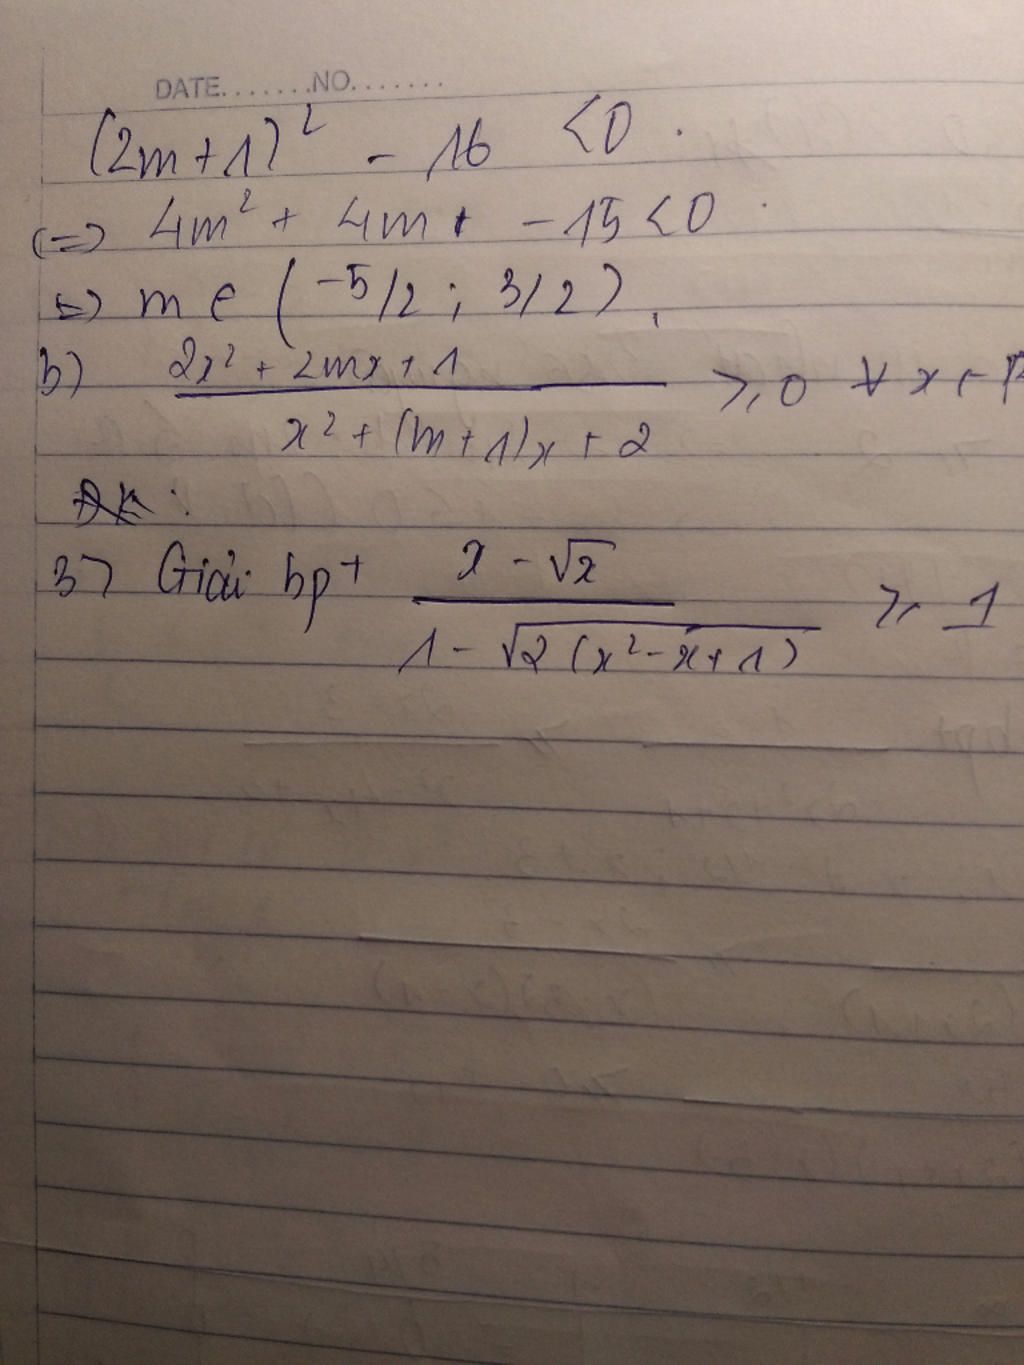 DATE.......NO.......
(2m+1)² - 16 < 0 .
(=) 4m² + 4m - 15 < 0
(=) m ∈ (-5/2 ; 3/2)
b) (2x² + 2mx + 1)/(x² + (m+1)x + 2) ≥ 0 ∀ x ∈ R
3) Giải bpt (x - √x)/(1 - √(2(x² - x + 1))) ≥ 1